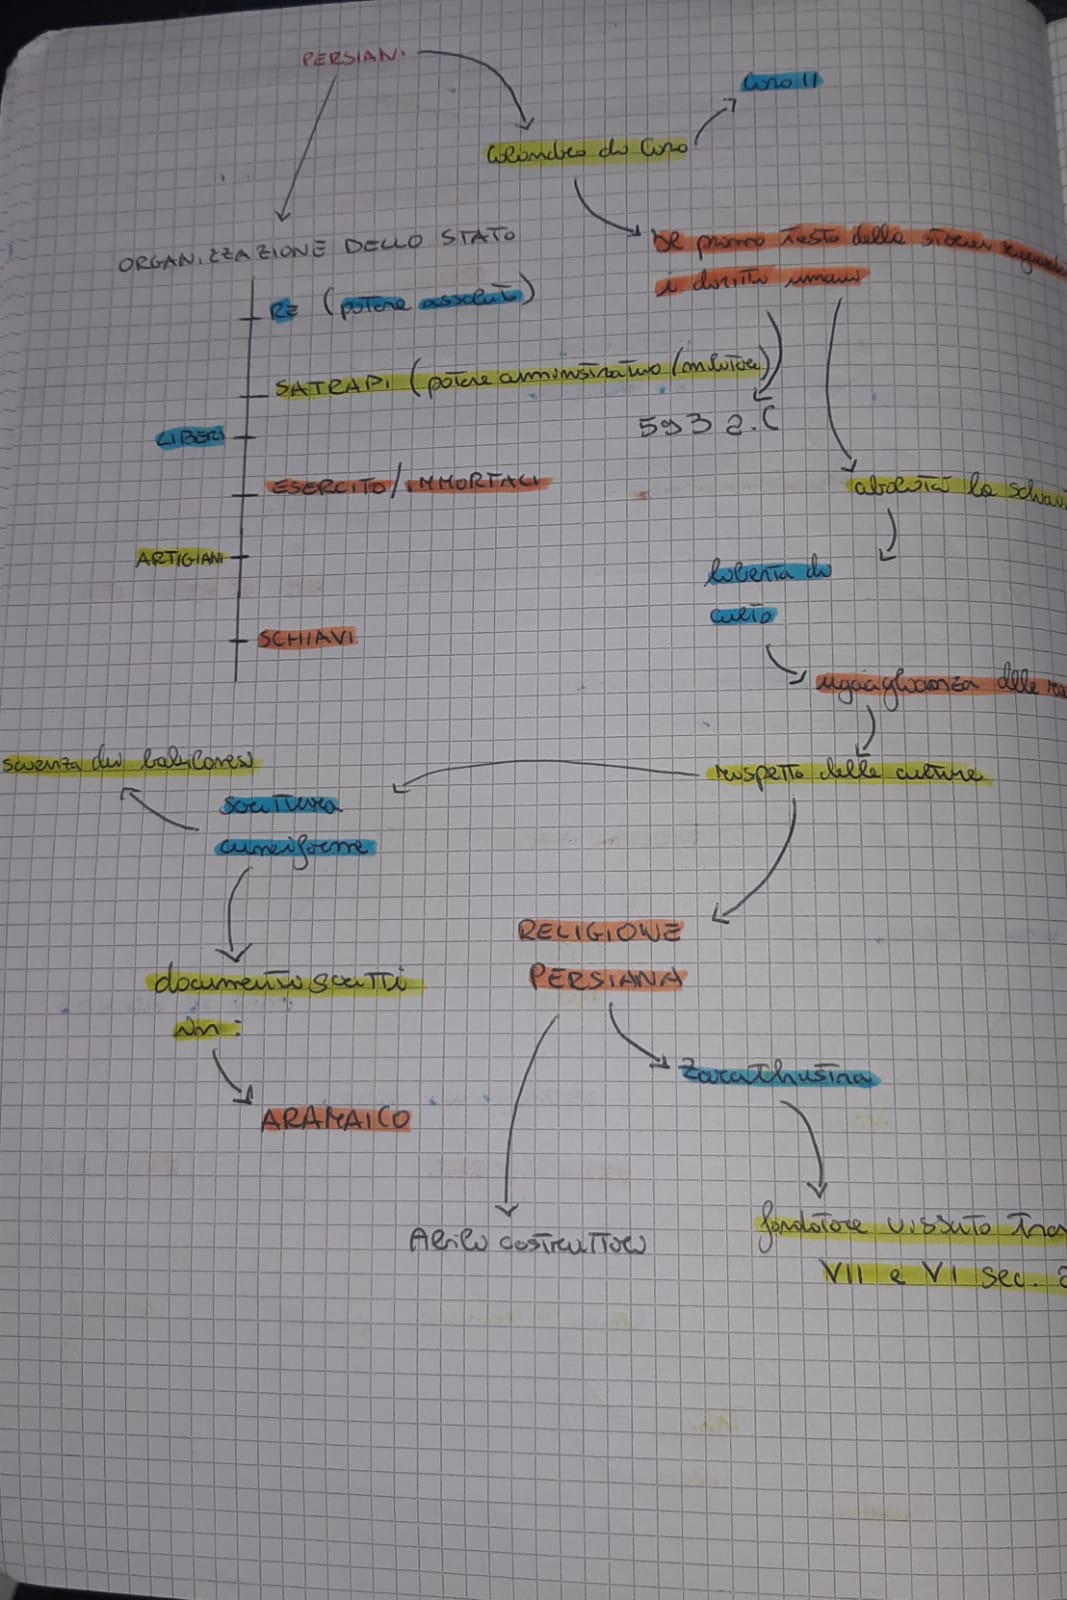 PERSIANI
Ciro II
Cilindro di Ciro
ORGANIZZAZIONE DELLO STATO
Il primo testo della storia
i diritti umani
RE (potere assoluto)
SATRAPI (potere amministrativo/militare)
593 a.C
LIBERI
ESERCITO/IMMORTALI
abolita la
ARTIGIANI
libertà di
culto
SCHIAVI
uguaglianza delle
scienza dei babilonesi
rispetto delle culture
scrittura
cuneiforme
RELIGIONE
PERSIANA
documenti scritti
in:
Zarathustra
ARAMAICO
Abili costruttori
fondatore vissuto tra
VII e VI sec. a